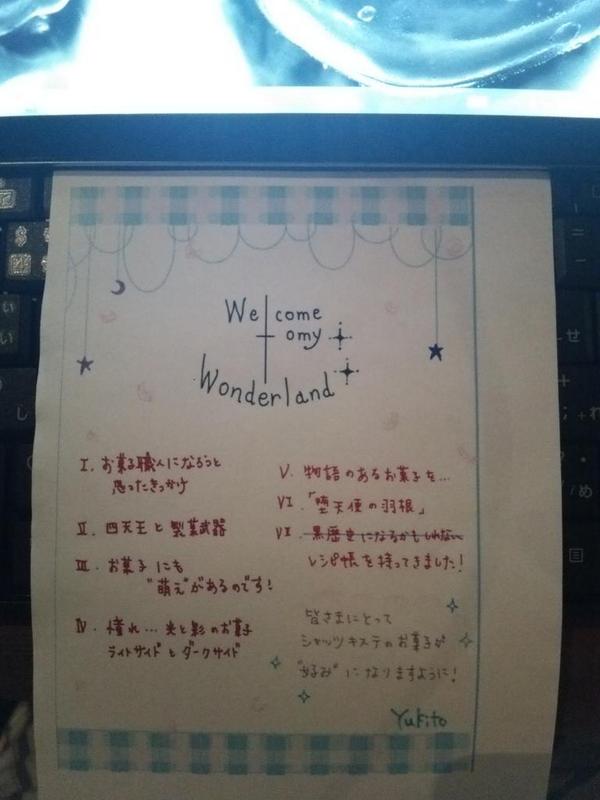 Welcome
tomy
Wonderland
I. お菓子職人になろうと
思ったきっかけ
II. 四天王と製菓武器
III. お菓子にも
"萌え"があるのです!
IV. 憧れ... 光と影のお菓子
ライトサイドとダークサイド
V. 物語のあるお菓子を...
VI. 「堕天使の羽根」
VII. 黒歴史になるかもしれない
レシピ帳を持ってきました!
皆さまにとって
シャッツキステのお菓子が
"好み"になりますように!
Yukito